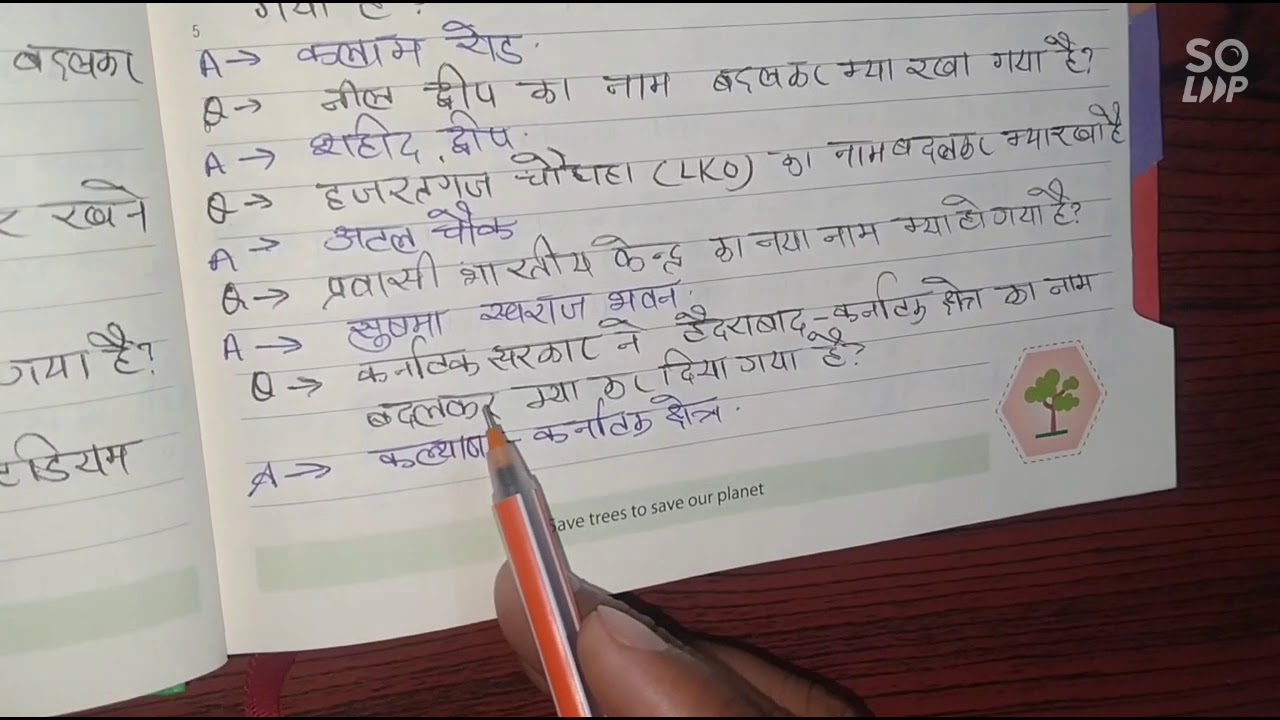 बदलकर
र रखने
गया है?
टेडियम
गया है?
5
A → कलाम रोड.
Q → नील द्वीप का नाम बदलकर क्या रखा गया है?
A → शहीद द्वीप.
Q → हजरतगंज चौराहा (LKO) का नाम बदलकर क्या रखा है
A → अटल चौक
Q → प्रवासी भारतीय केन्द्र का नया नाम क्या हो गया है?
A → सुषमा स्वराज भवन.
Q → कर्नाटक सरकार ने हैदराबाद-कर्नाटक क्षेत्र का नाम
बदलकर क्या कर दिया गया है?
A → कल्याण - कर्नाटक क्षेत्र.
Save trees to save our planet
SO
LOOP